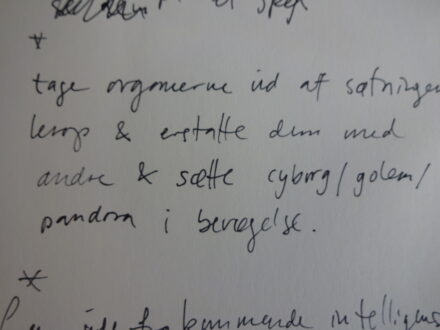 et spejl
*
tage organerne ud af sætningen
krop & erstatte dem med
andre & sætte cyborg/golem/
pandora i bevægelse.
*
kommende intelligens